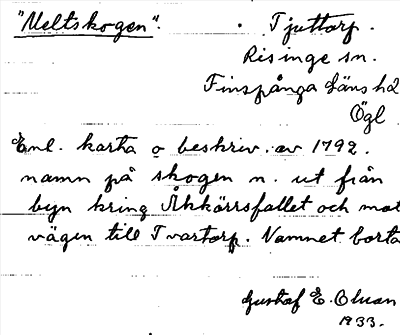 "Meltskogen". Tjuttorp.
Risinge sn.
Finspånga läns hd
Ögl
Enl. karta o beskriv. av 1792.
namn på skogen n. ut från
byn kring Åkkärrsfallet och mot
vägen till Tvartorp. Namnet borta
Gustaf E. Olson
1933.